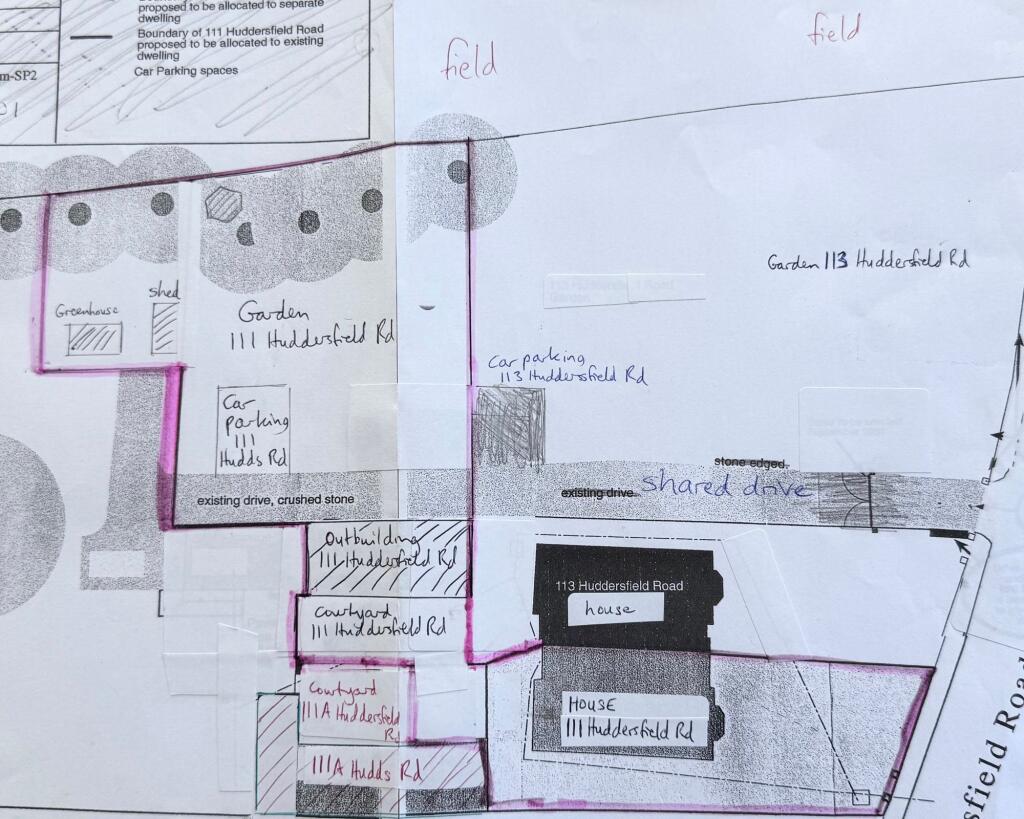 proposed to be allocated to separate
dwelling
Boundary of 111 Huddersfield Road
proposed to be allocated to existing
dwelling
Car Parking spaces
m-SP2
01
field
field
Garden 113 Huddersfield Rd
Greenhouse
shed
Garden
111 Huddersfield Rd
Car parking
113 Huddersfield Rd
Car
parking
111
Hudds Rd
stone edged.
existing drive.
shared drive
existing drive, crushed stone
Outbuilding
111 Huddersfield Rd
113 Huddersfield Road
house
Courtyard
111 Huddersfield Rd
Courtyard
111A Huddersfield
Rd
HOUSE
111 Huddersfield Rd
111A Hudds Rd
sfield Road